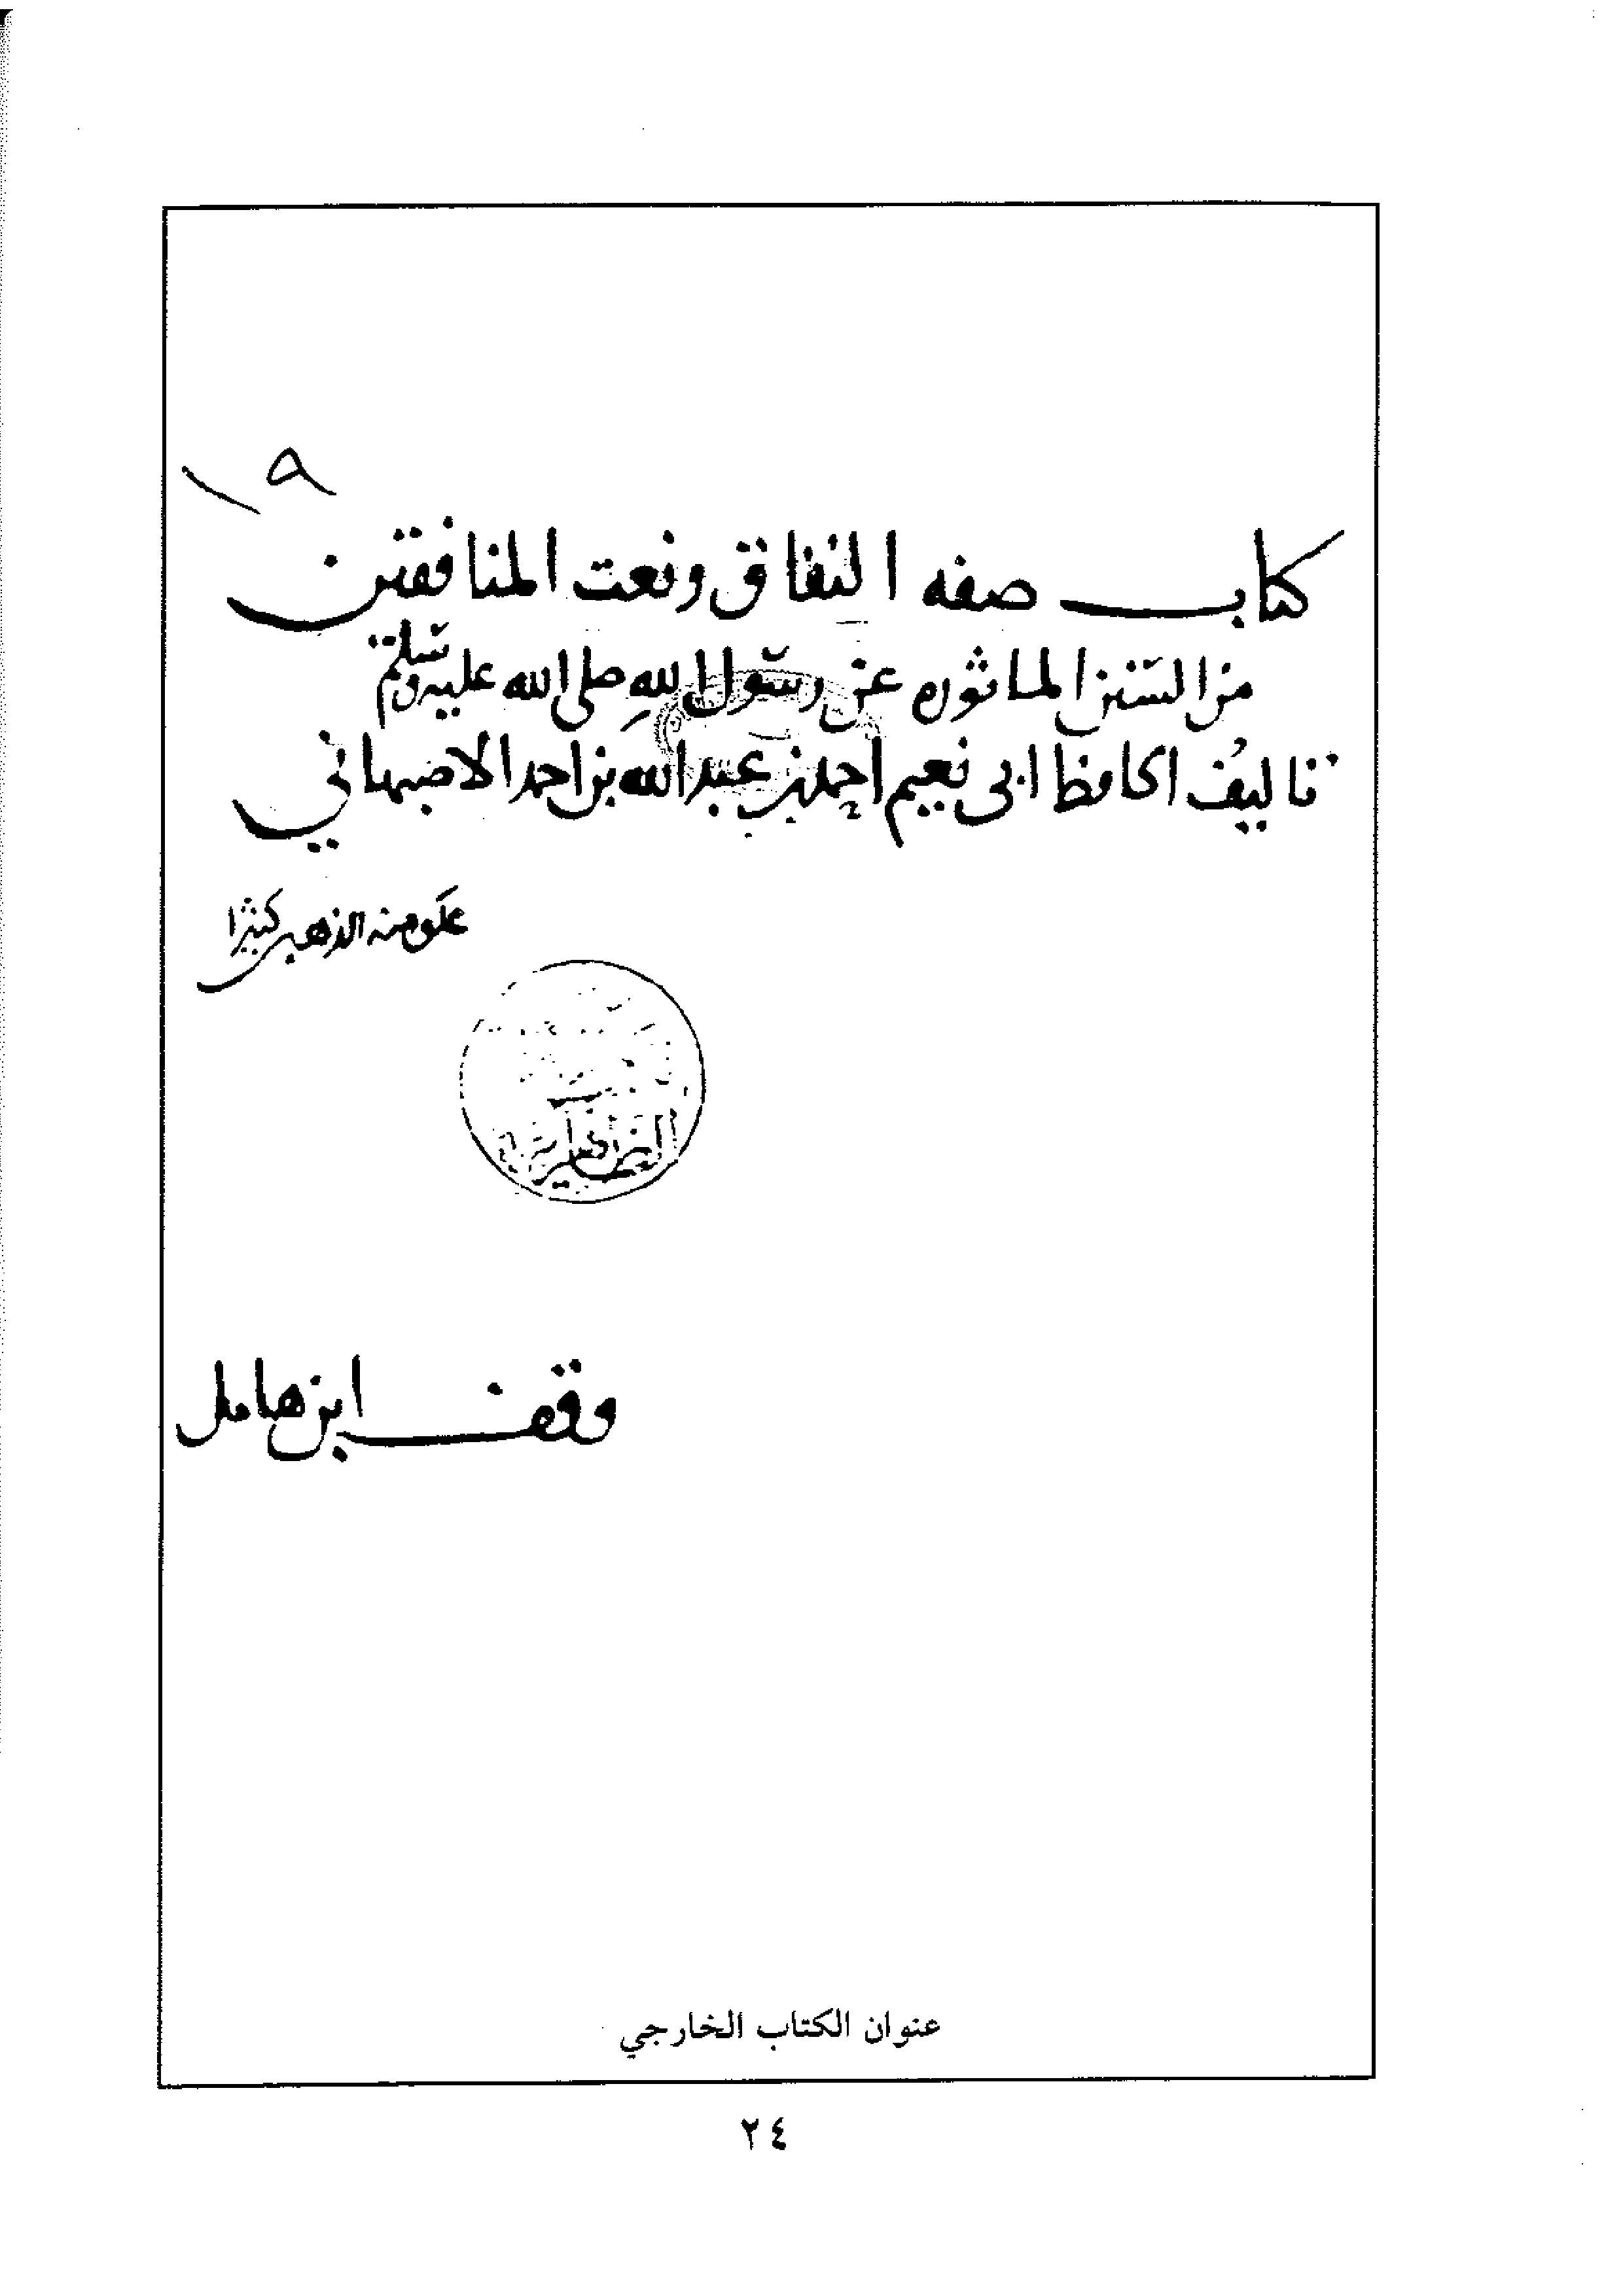 ٩
كتاب صفه النفاق ونعت المنافقين
من السنن الماثوره عن رسول الله صلى الله عليه وسلم
تاليف الحافظ ابي نعيم احمد بن عبد الله بن احمد الاصبهاني
علق منه الذهبي كثيرا
وقف ابن هامل
عنوان الكتاب الخارجي
٢٤